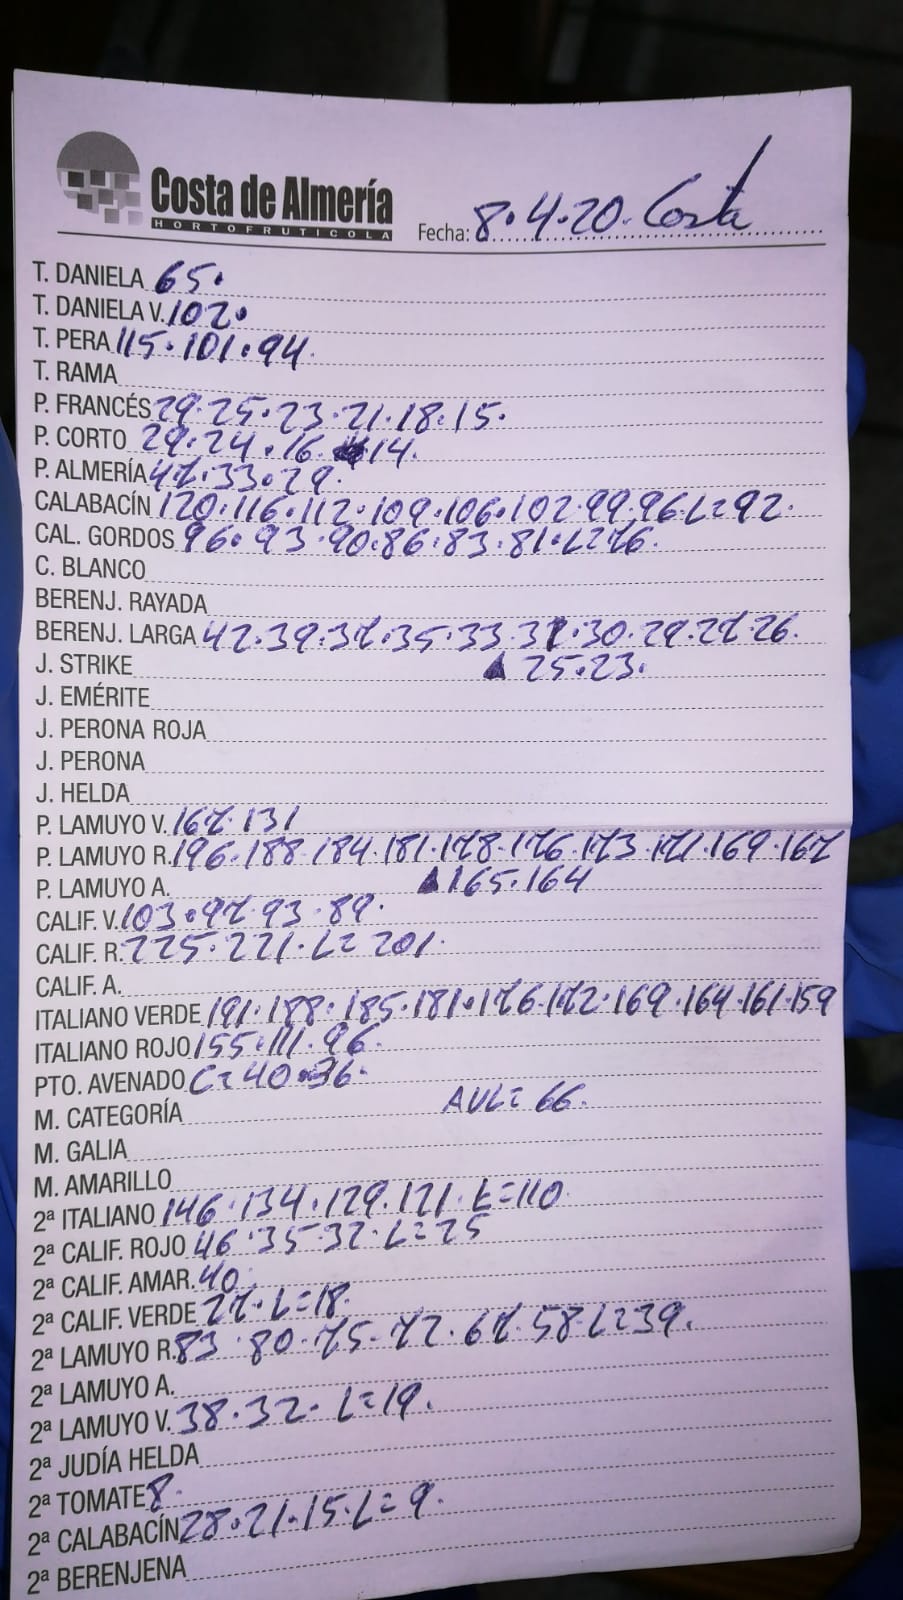 Costa de Almería
HORTOFRUTICOLA
Fecha: 8.4.20. Costa
T. DANIELA 65.
T. DANIELA V. 102.
T. PERA 115.101.94.
T. RAMA
P. FRANCÉS 29.25.23.21.18.15.
P. CORTO 29.24.16. 14.
P. ALMERÍA 47.33.29.
CALABACÍN 120.116.112.109.106.102.99.96.L=92.
CAL. GORDOS 96.93.90.86.83.81.L=76.
C. BLANCO
BERENJ. RAYADA
BERENJ. LARGA 42.39.37.35.33.31.30.29.27.26.
J. STRIKE ▲ 25.23.
J. EMÉRITE
J. PERONA ROJA
J. PERONA
J. HELDA
P. LAMUYO V. 167.131
P. LAMUYO R. 196.188.184.181.178.176.173.171.169.167
P. LAMUYO A. ▲ 165.164
CALIF. V. 103.97.93.89.
CALIF. R. 225.221.L=201.
CALIF. A.
ITALIANO VERDE 191.188.185.181.176.172.169.164.161.159
ITALIANO ROJO 155.111.96.
PTO. AVENADO C=40.36.
M. CATEGORÍA AVL=66.
M. GALIA
M. AMARILLO
2ª ITALIANO 146.134.129.121.L=110.
2ª CALIF. ROJO 46.35.32.L=25
2ª CALIF. AMAR. 40.
2ª CALIF. VERDE 27.L=18.
2ª LAMUYO R. 83.80.75.72.67.58.L=39.
2ª LAMUYO A.
2ª LAMUYO V. 38.32.L=19.
2ª JUDÍA HELDA
2ª TOMATE 8.
2ª CALABACÍN 28.21.15.L=9.
2ª BERENJENA